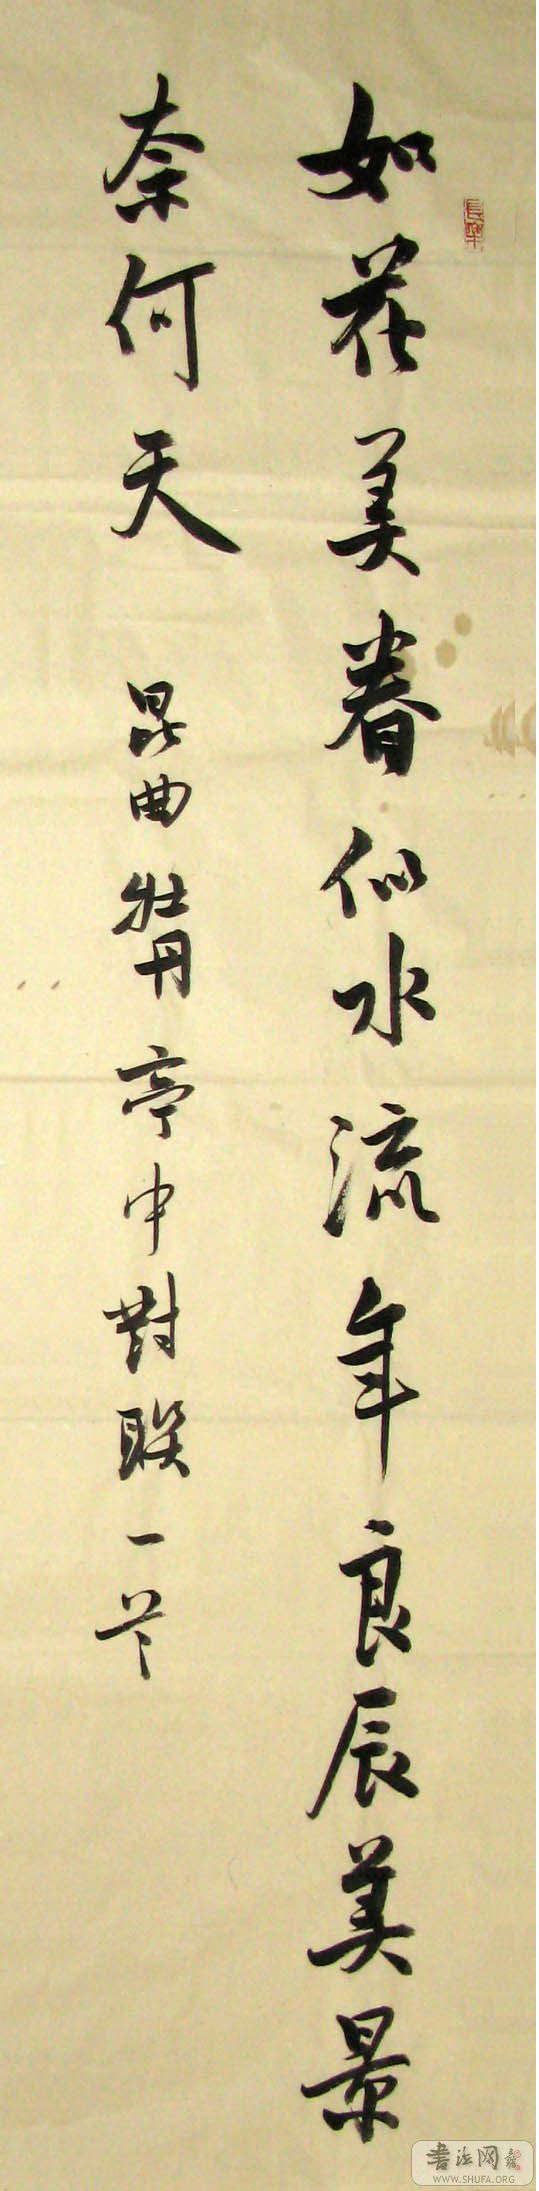 如花美眷似水流年良辰美景
奈何天
昆曲牡丹亭中對联一首
長樂
书法网
WWW.SHUFA.ORG